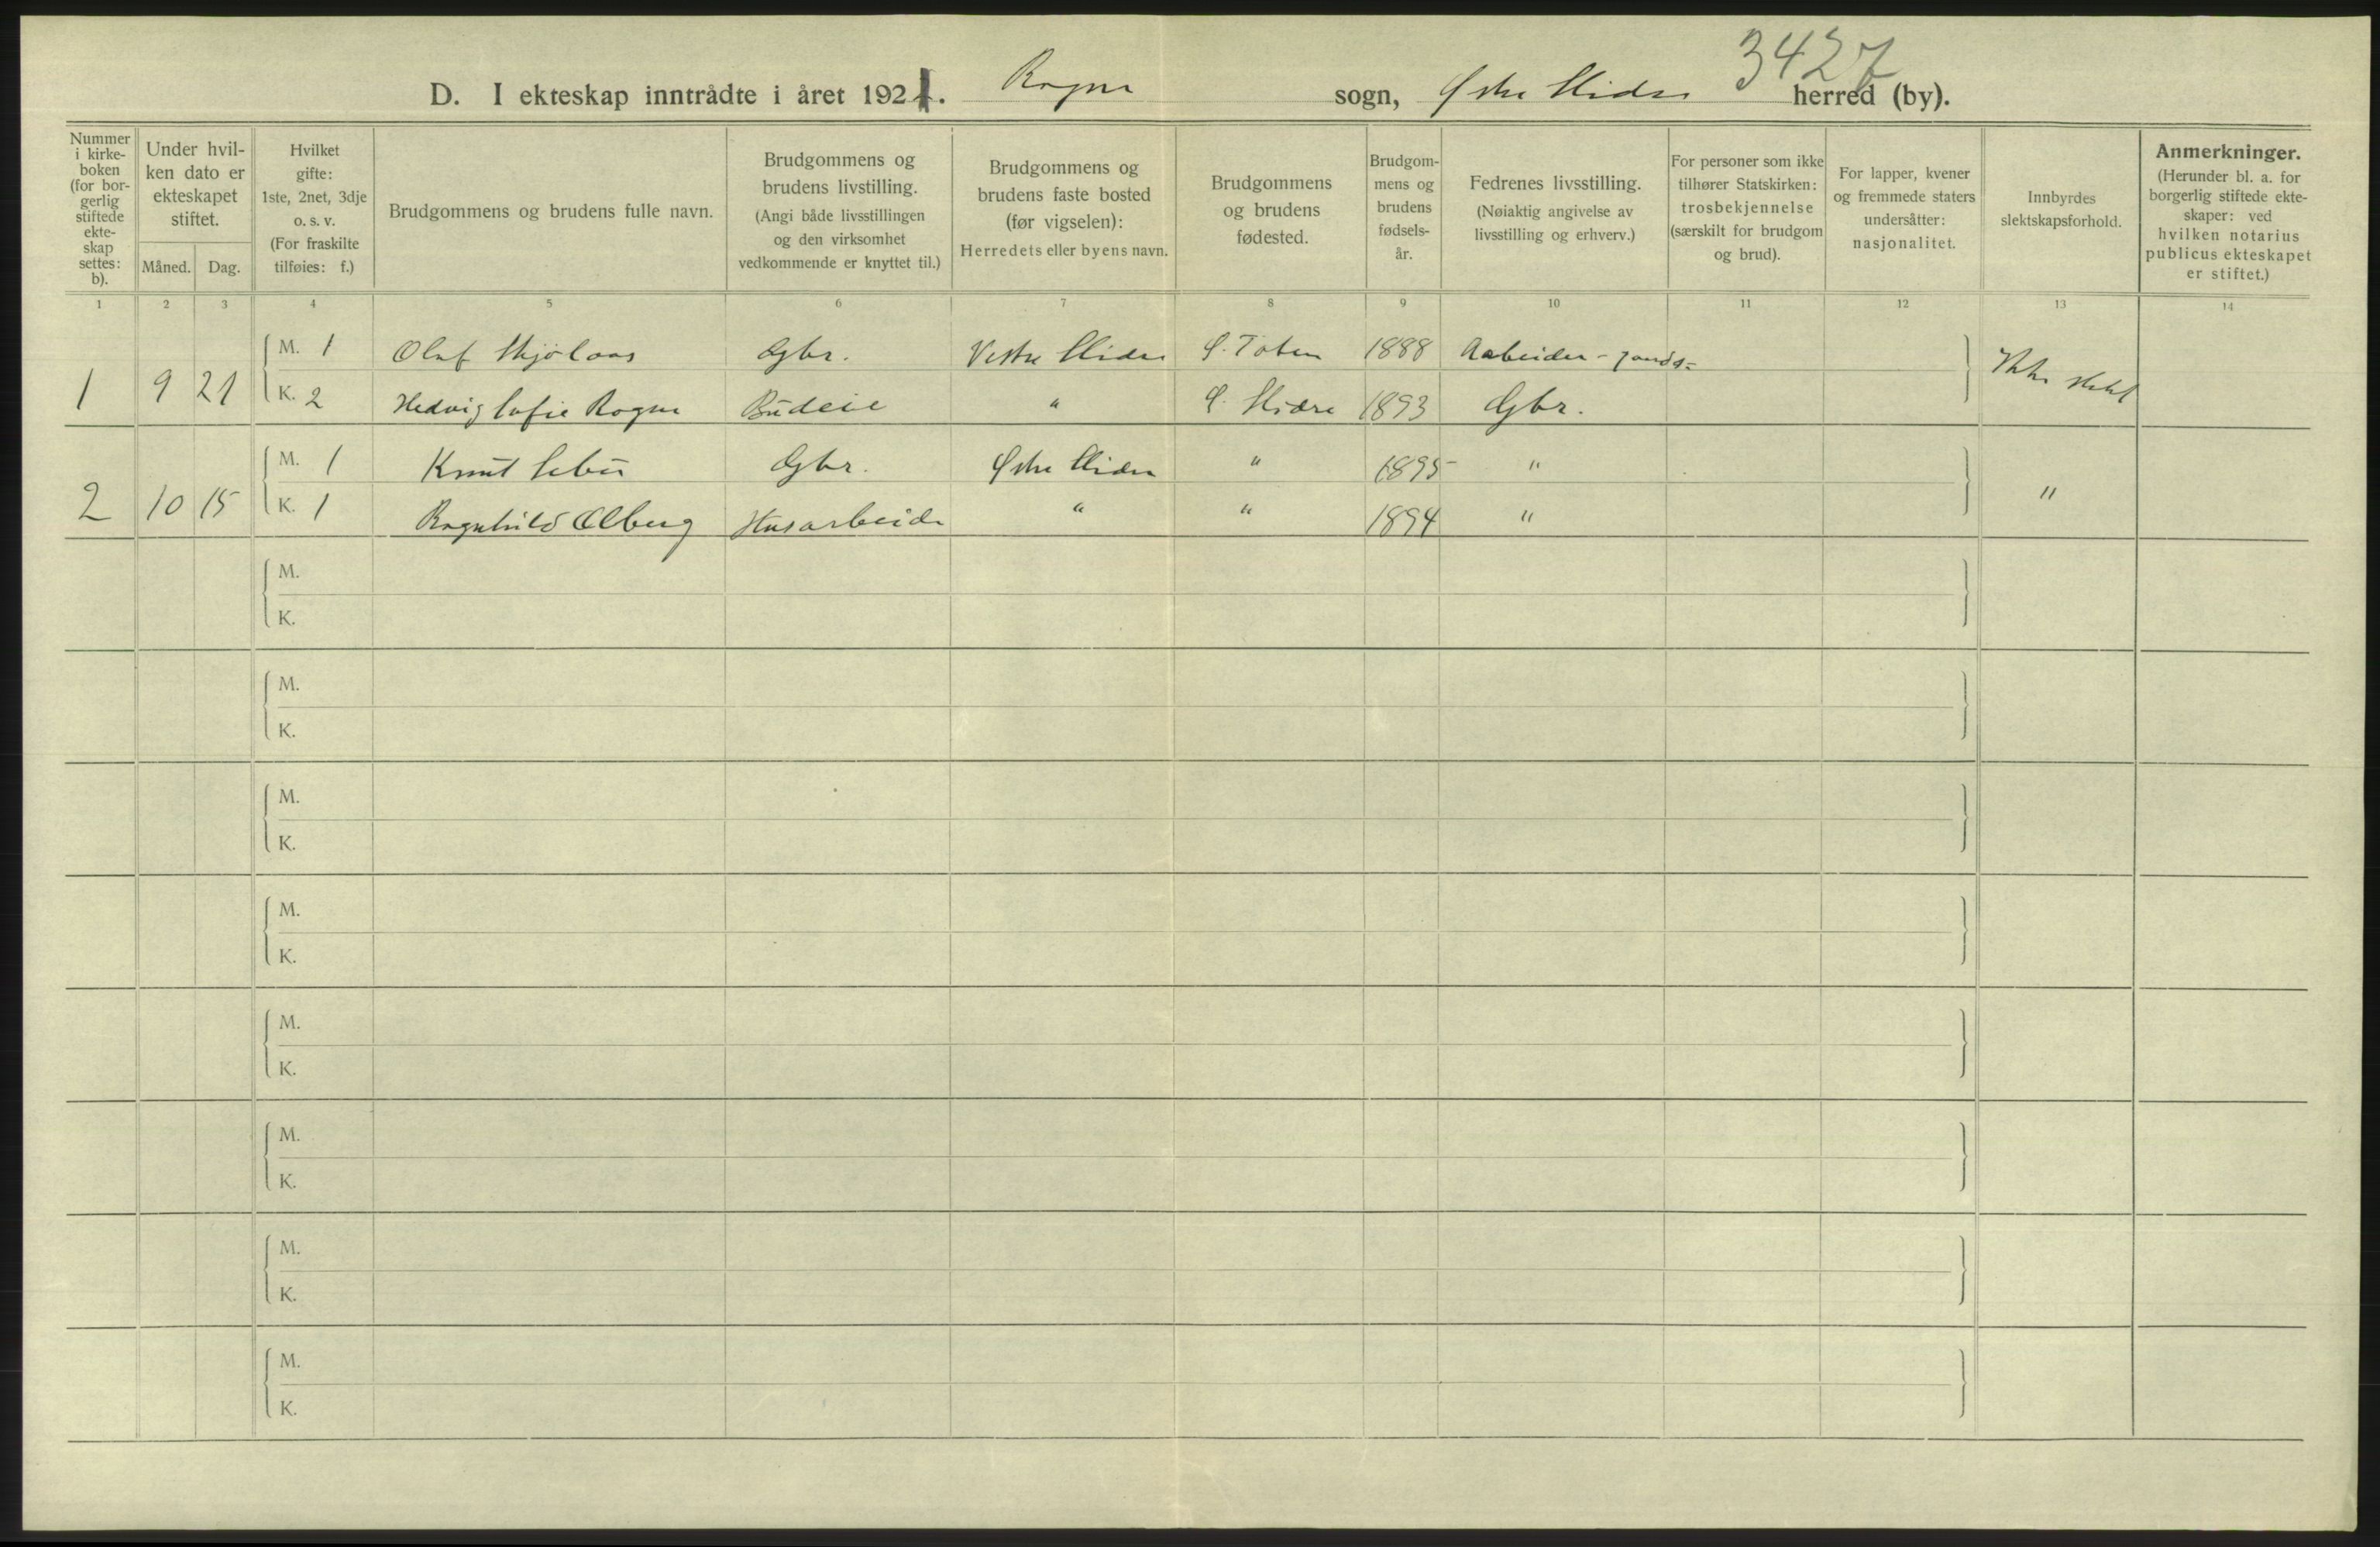 3427
D. I ekteskap inntrådte i året 1921. Rogne sogn, Østre Slidre herred (by).
Nummer i kirke-boken (for bor-gerlig stiftede ekte-skap settes: b).
Under hvil-ken dato er ekteskapet stiftet.
Måned. Dag.
Hvilket gifte: 1ste, 2net, 3dje o. s. v. (For fraskilte tilføies: f.)
Brudgommens og brudens fulle navn.
Brudgommens og brudens livstilling. (Angi både livsstillingen og den virksomhet vedkommende er knyttet til.)
Brudgommens og brudens faste bosted (før vigselen): Herredets eller byens navn.
Brudgommens og brudens fødested.
Brudgom-mens og brudens fødsels-år.
Fedrenes livsstilling. (Nøiaktig angivelse av livsstilling og erhverv.)
For personer som ikke tilhører Statskirken: trosbekjennelse (særskilt for brudgom og brud).
For lapper, kvener og fremmede staters undersåtter: nasjonalitet.
Innbyrdes slektskapsforhold.
Anmerkninger. (Herunder bl. a. for borgerlig stiftede ekte-skaper: ved hvilken notarius publicus ekteskapet er stiftet.)
1 2 3 4 5 6 7 8 9 10 11 12 13 14
M. 1 Olaf Skjølaas Gbr. Vestre Slidre Ø. Toten 1888 Aabeider - jords-
1 9 21 K. 2 Hedvig Sofie Rogne Budeie " Ø. Slidre 1893 Gbr. Ikke slekt
M. 1 Knut Sebu Gbr. Østre Slidre " 1895 "
2 10 15 K. 1 Ragnhild Olberg Husarbeide " " 1894 " "
M.
K.
M.
K.
M.
K.
M.
K.
M.
K.
M.
K.
M.
K.
M.
K.